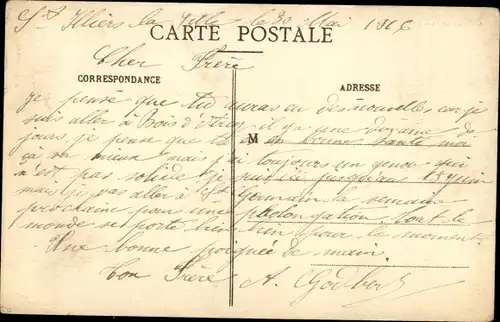 St Illiers la Ville le 30 Mai 1916
CARTE POSTALE
Cher Frère
CORRESPONDANCE
ADRESSE
Je pense que tu auras eu des nouvelles car je
suis aller à Bois d'Arcy il y a une dizaine de
jours, je pense que M en bonne santé moi
ça va mieux mais j'ai toujours un genou qui
n'est pas solide je suis ici jusqu'au juin
mais je vais aller à St Germain la semaine
prochaine pour une prolongation tout le
monde se porte bien pour le moment
Une bonne poignée de main.
Ton Frère A. Godbert